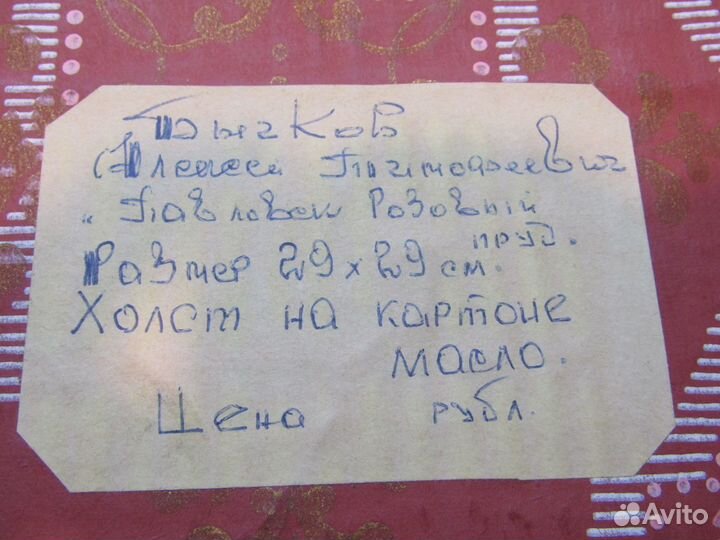 Бычков
(Алексей Тимофеевич
„Павловск Розовый
пруд.
Размер 29х29 см.
Холст на картоне
масло.
Цена рубл.
Avito